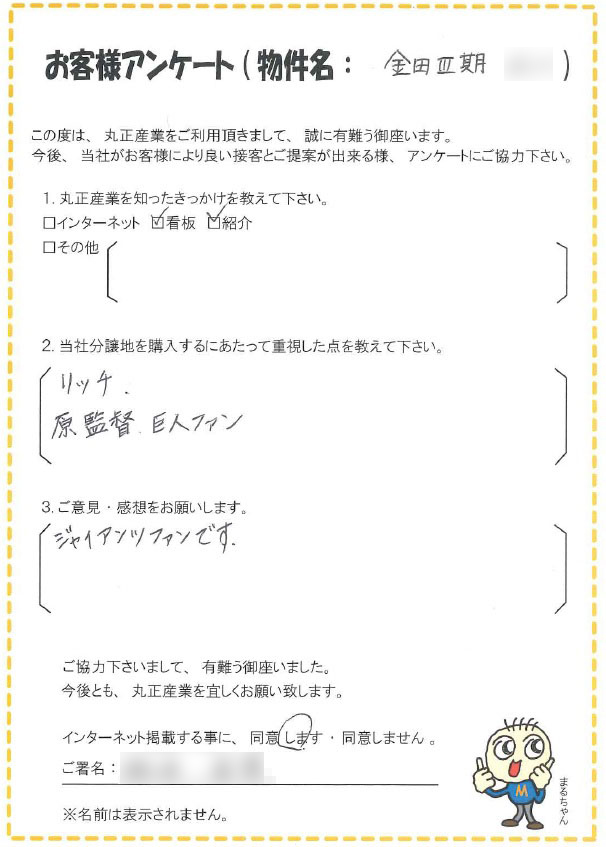 お客様アンケート(物件名: 金田Ⅱ期 )
この度は、丸正産業をご利用頂きまして、誠に有難う御座います。
今後、当社がお客様により良い接客とご提案が出来る様、アンケートにご協力下さい。
1. 丸正産業を知ったきっかけを教えて下さい。
□インターネット ☑看板 ☑紹介
□その他
2. 当社分譲地を購入するにあたって重視した点を教えて下さい。
リッチ.
原監督.巨人ファン
3. ご意見・感想をお願いします。
ジャイアンツファンです.
ご協力下さいまして、有難う御座いました。
今後とも、丸正産業を宜しくお願い致します。
インターネット掲載する事に、同意します・同意しません。
ご署名:
M
まるちゃん
※名前は表示されません。